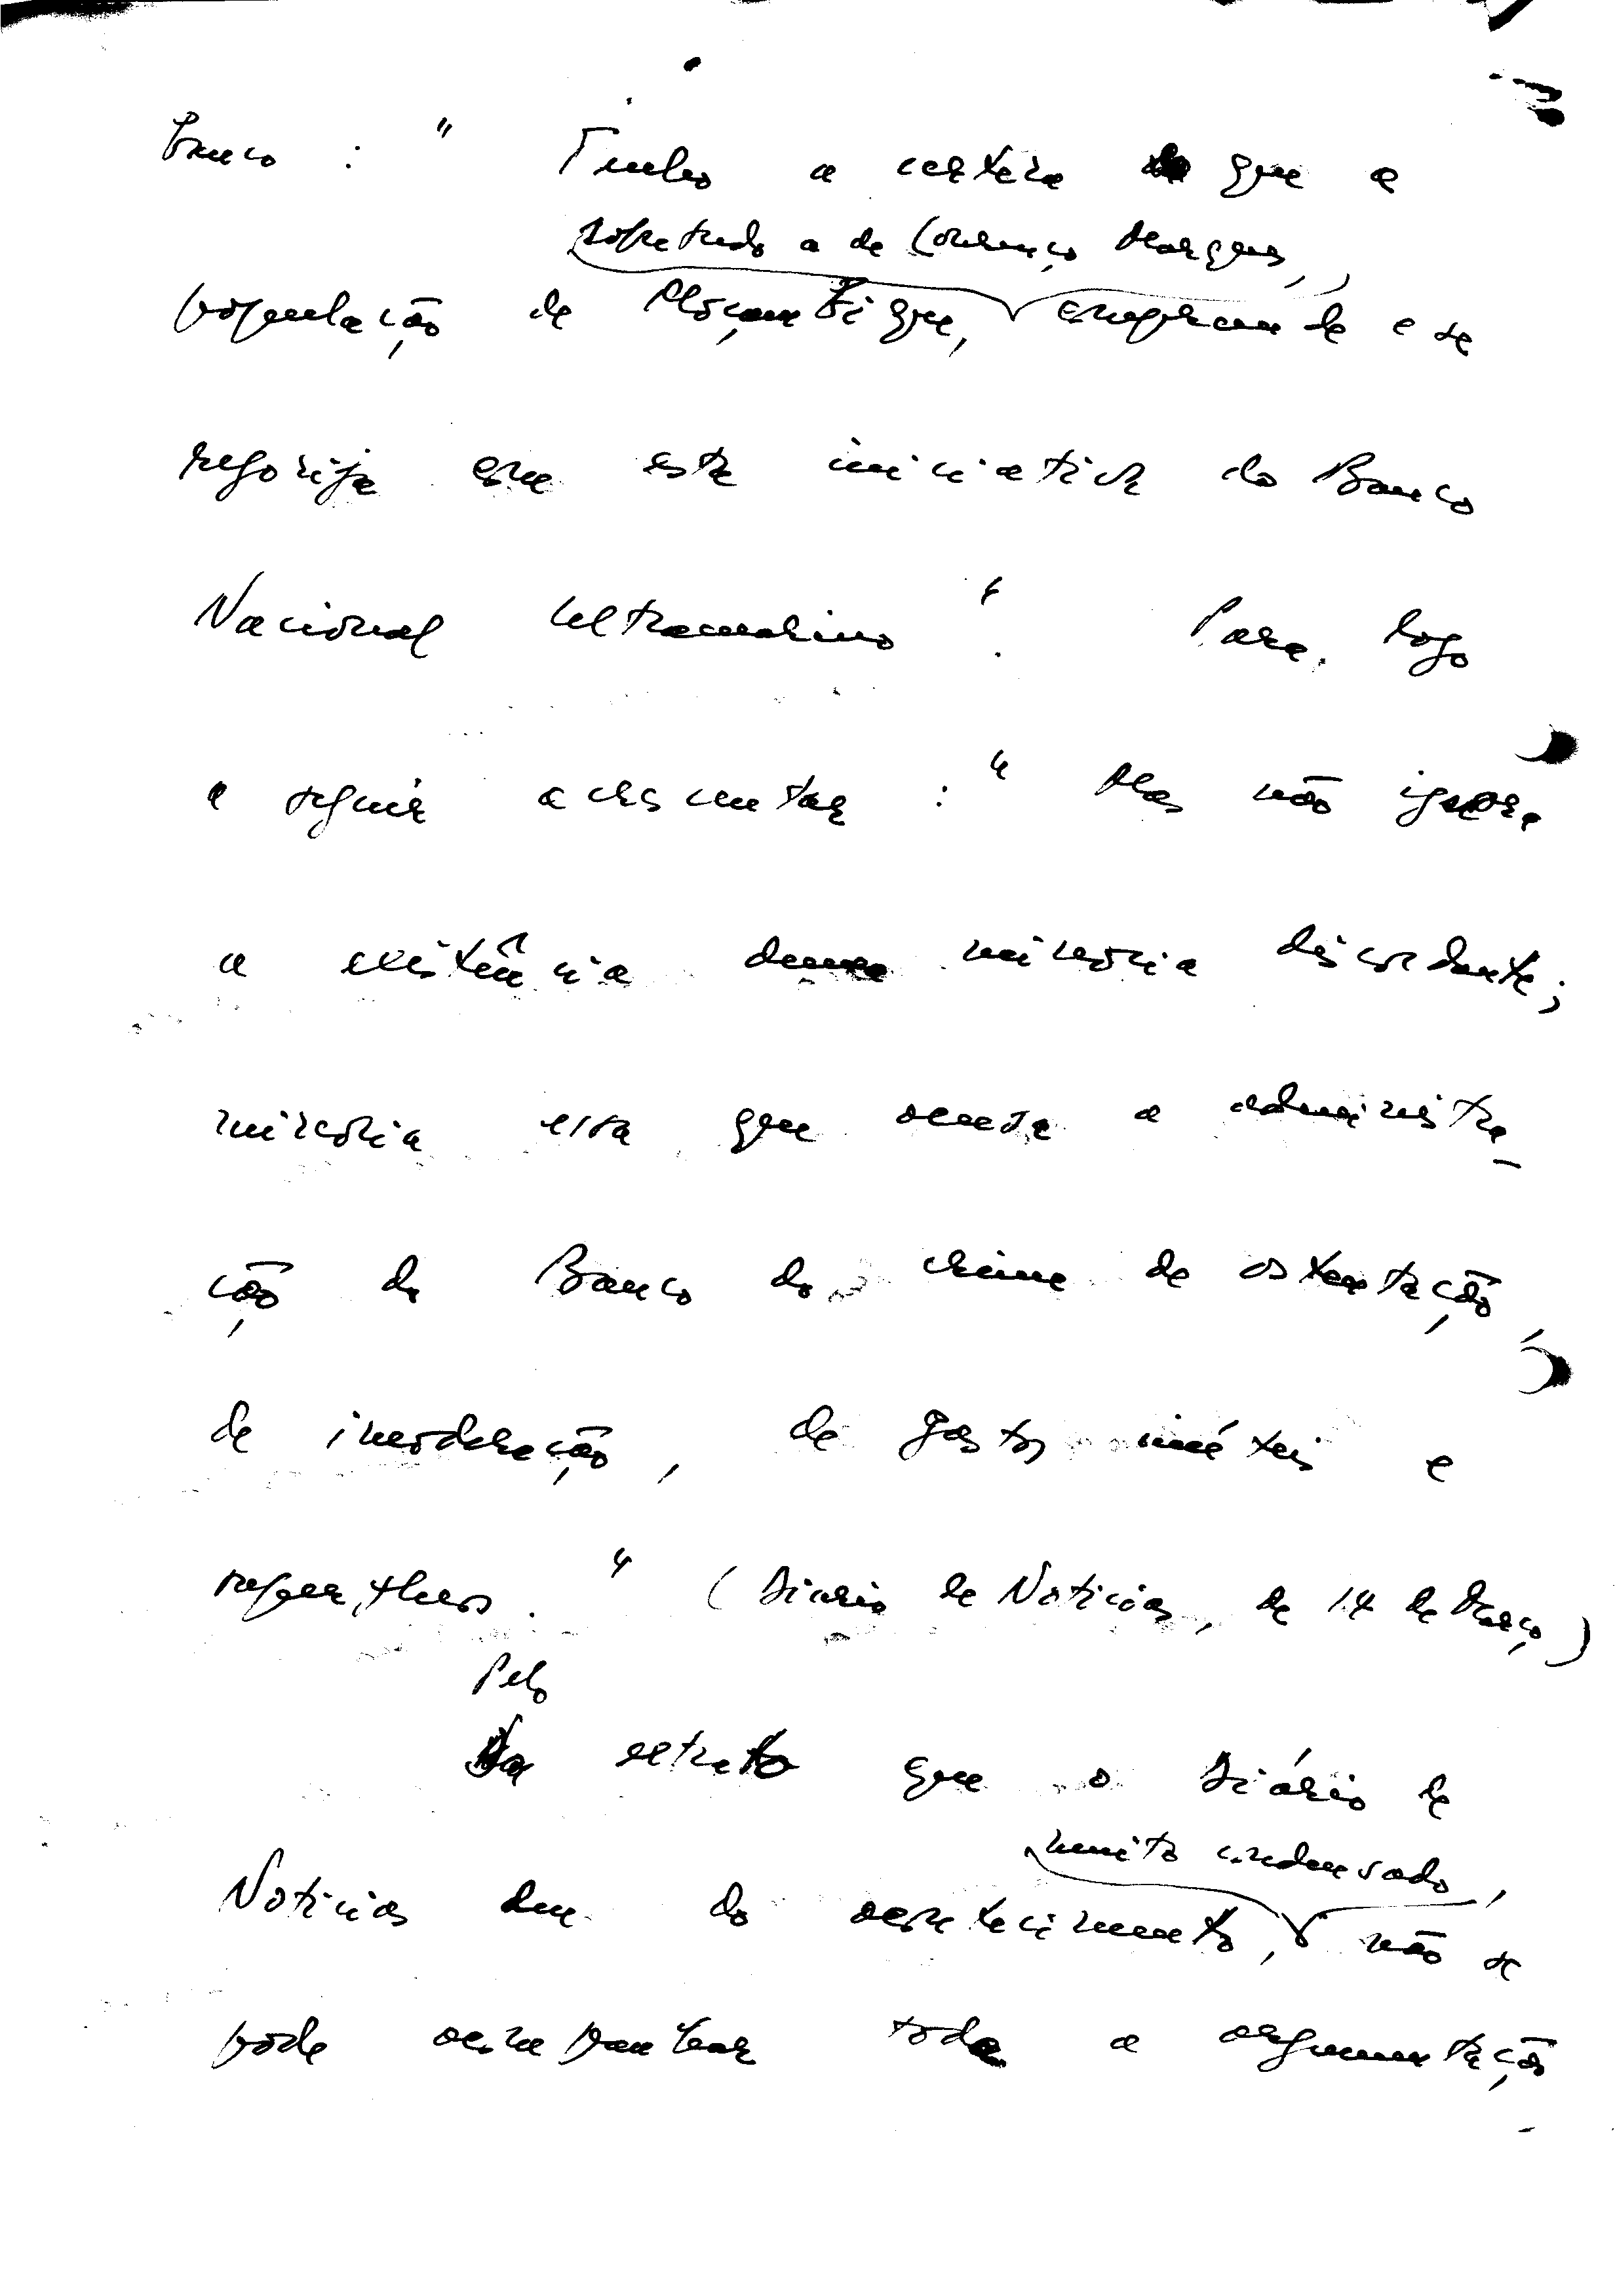 Banco : " Tenho a certeza de que a
sobretudo a de Lourenço Marques,
população de Moçambique, compreende e se
regozija com esta iniciativa do Banco
Nacional Ultramarino ". Para, logo
a seguir acrescentar : " Mas não ignora
a existência duma minoria discordante;
minoria essa que acusa a administra-
ção do Banco do crime de ostentação,
de imoderação, de gastos inúteis e
supérfluos. " (Diário de Notícias, de 14 de Março)
Pelo
extrato que o Diário de
muito condensado,
Notícias deu do acontecimento, não se
pode acompanhar toda a argumentação